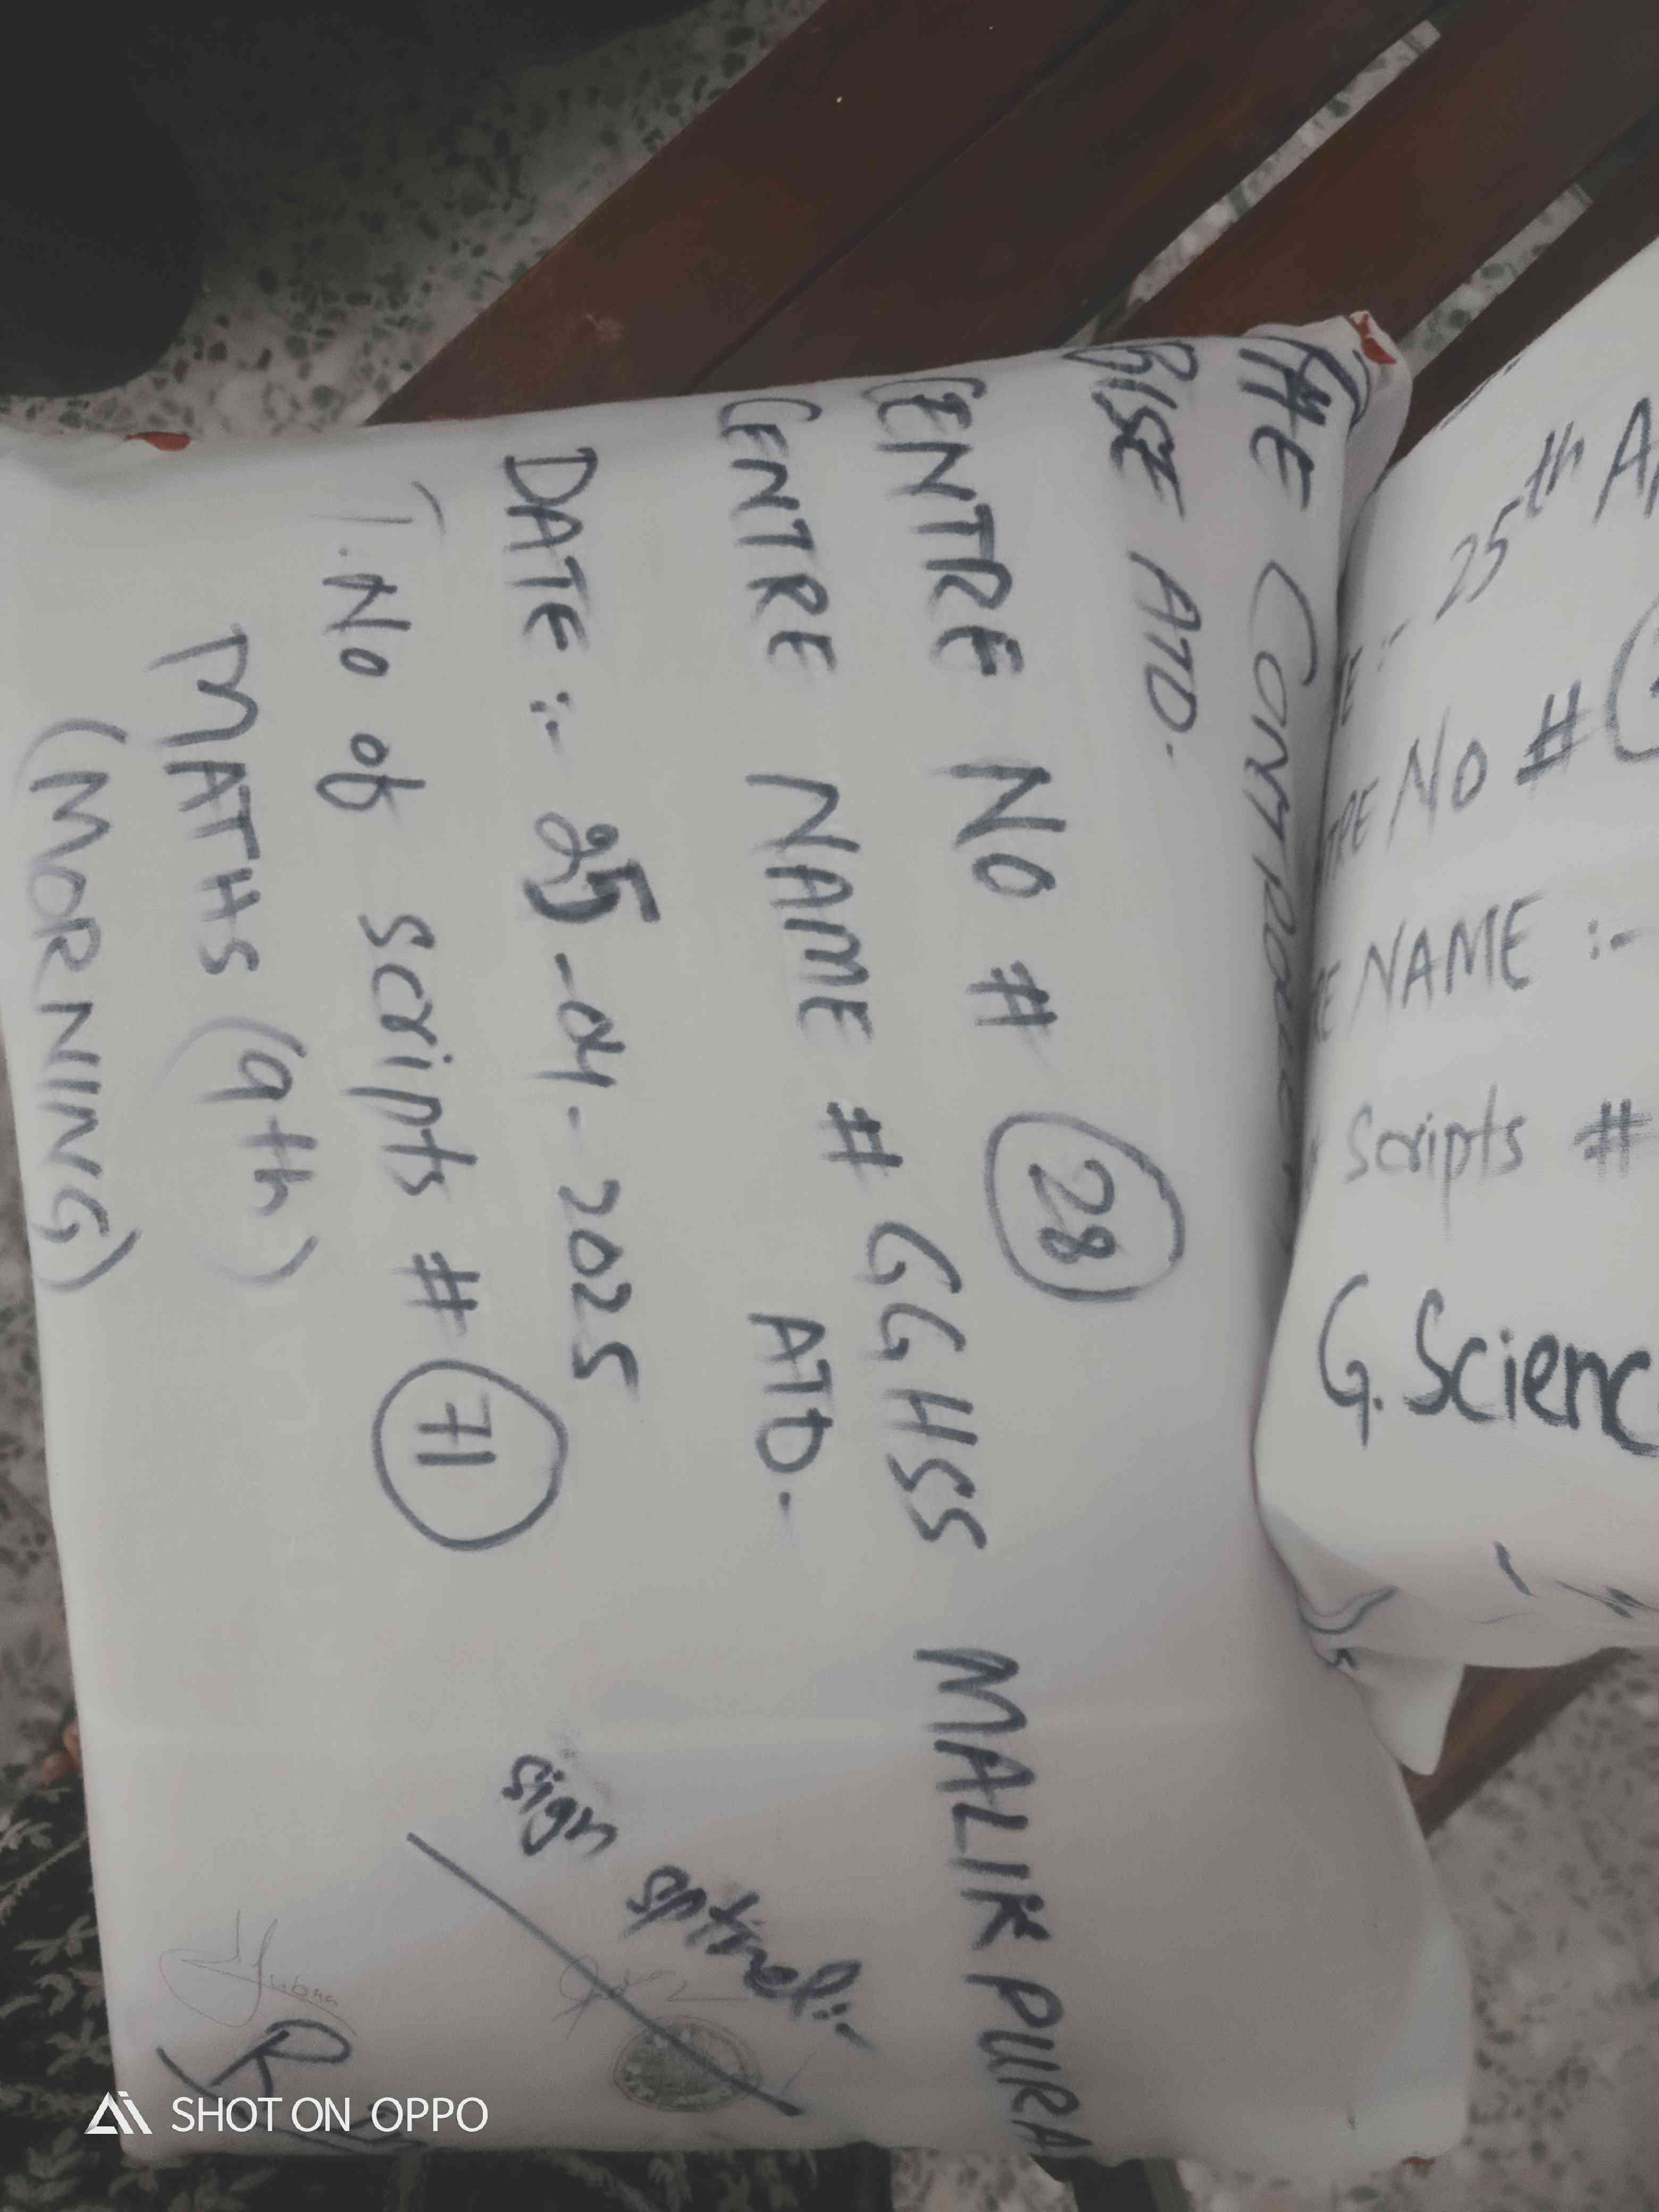 THE CONTROLLER
BISE ATD.
CENTRE NO # 28
CENTRE NAME # GGHSS MALIKPURA
ATD.
DATE :- 25-04-2025
T.No of scripts # 71
MATHS (9th)
(MORNING)
sign sptned:-
25th A
E :-
RE No #
E NAME :-
Scripts #
G. Scienc
SHOT ON OPPO